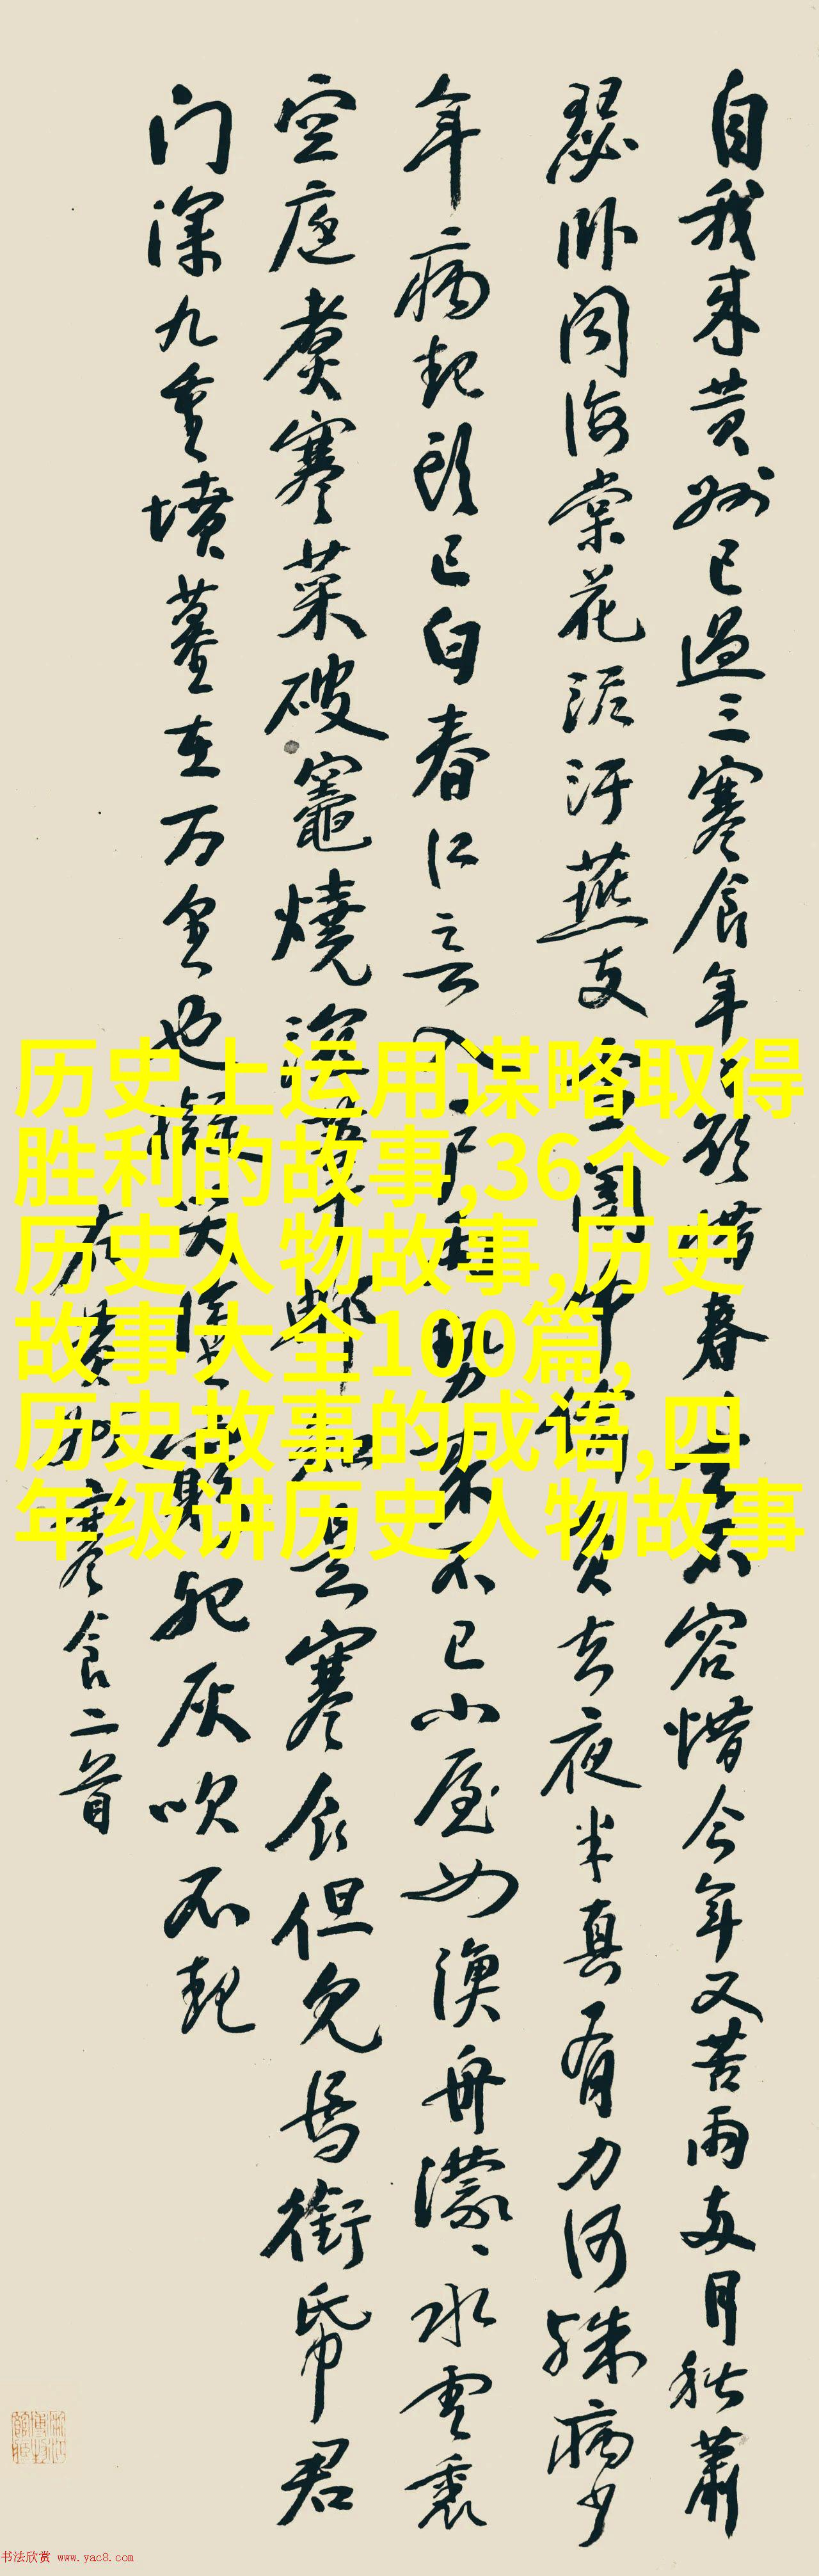 自我来黄州已過三寒食年〻欲惜春〻去不容惜今年又苦雨两月秋蕭
瑟卧闻海棠花泥汙燕支雪闇中偷負去夜半真有力何殊病少
年病起頭已白春江入户雨勢来不已小屋如漁舟濛〻水雲裏
空庖煮寒菜破竈燒濕葦那知是寒食但見烏銜帋君
门深九重墳墓在万里也擬哭塗窮死灰吹不起
右黄州寒食二首
历史上运用谋略取得
胜利的故事,36个
历史人物故事,历史
故事大全100篇,
历史故事的成语,四
年级讲历史人物故事
书法欣赏 www.yac8.com